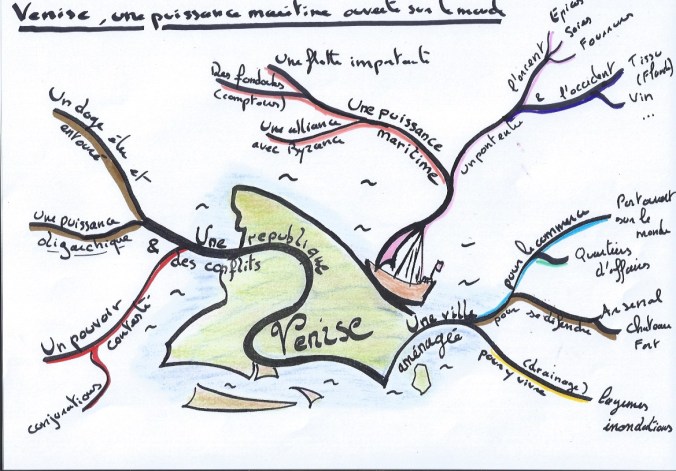 Venise, une puissance maritime ouverte sur le monde
Une flotte importante
Des fondouks
(comptoirs)
Une alliance
avec Byzance
Une puissance
maritime
un pont entre
l'orient
Epices
Soies
Fourrures
& l'occident
Tissu
(Flandre)
Vin
...
Un doge élu et
entouré
Une puissance
oligarchique
Une république
& des conflits
Un pouvoir
contesté
conjurations
Venise
Une ville
aménagée
pour le commerce
Port ouvert
sur le
monde
Quartiers
d'affaires
pour se défendre
Arsenal
Chateau
Fort
pour y vivre
(drainage)
lagunes
inondations